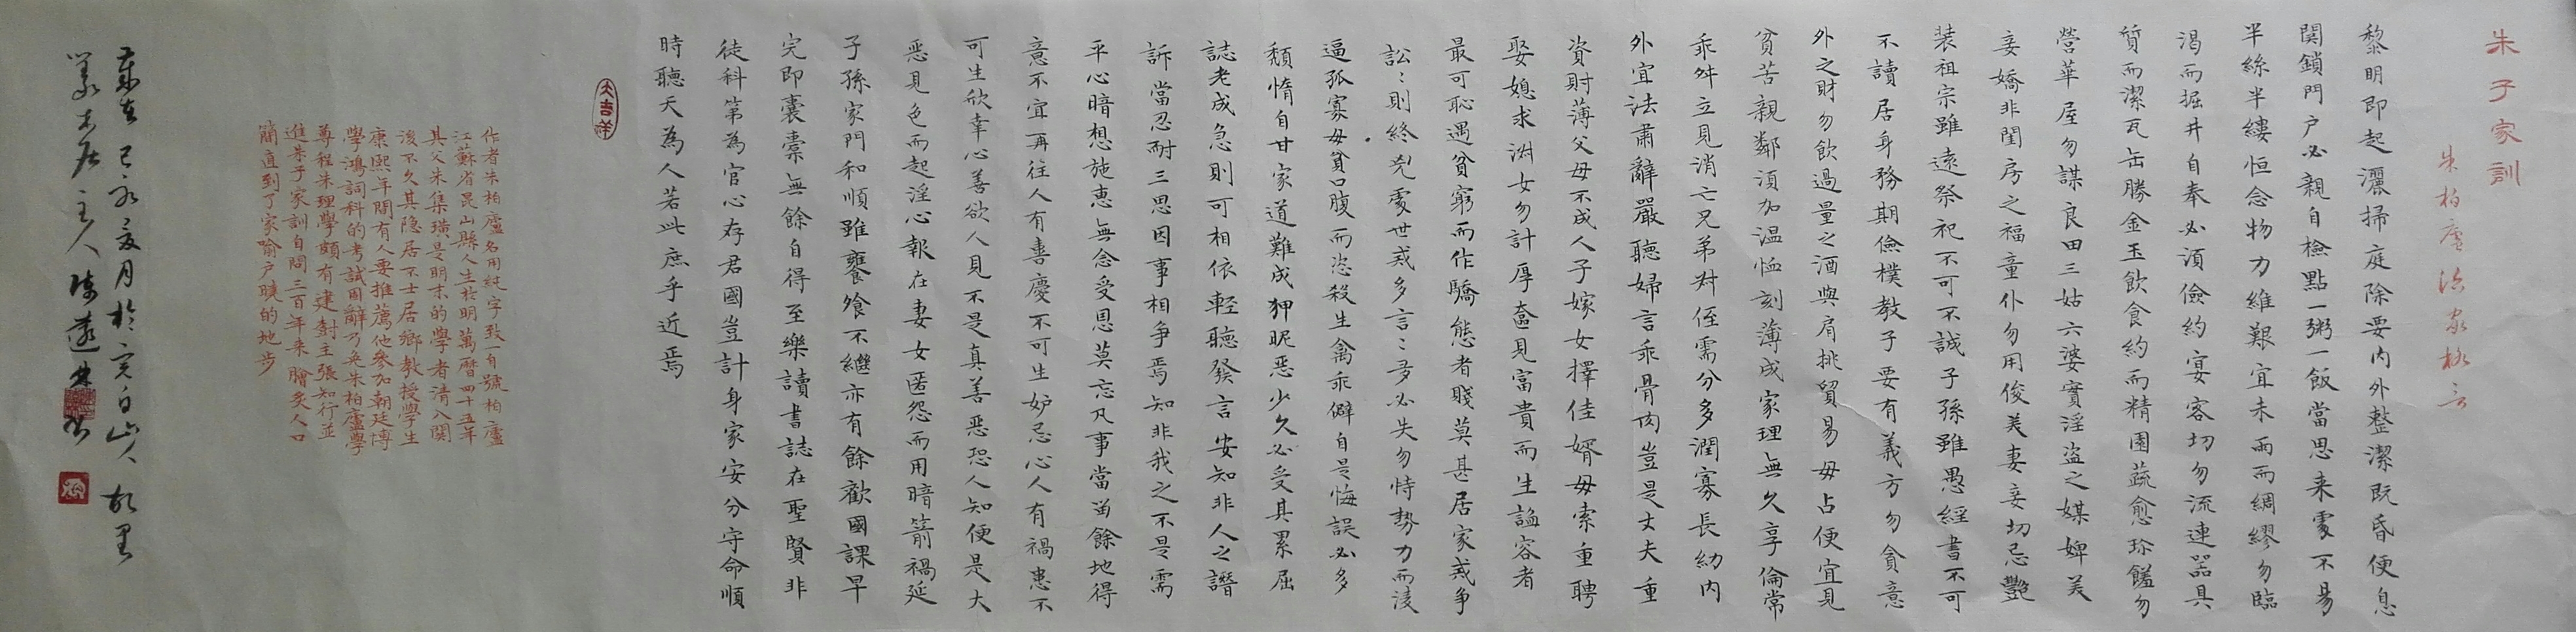 朱子家訓
朱柏廬治家格言
黎明即起灑掃庭除要内外整潔既昏便息
関鎖門户必親自檢點一粥一飯當思来處不易
半絲半縷恒念物力維艱宜未雨而綢繆勿臨
渴而掘井自奉必須儉約宴客切勿流連器具
質而潔瓦缶勝金玉飲食約而精園蔬愈珍饈勿
營華屋勿謀良田三姑六婆實淫盗之媒婢美
妾嬌非閨房之福童仆勿用俊美妻妾切忌艷
装祖宗雖遠祭祀不可不誠子孫雖愚經書不可
不讀居身務期儉樸教子要有義方勿貪意
外之財勿飲過量之酒與肩挑貿易毋占便宜見
貧苦親鄰須加温恤刻薄成家理無久享倫常
乖舛立見消亡兄弟対侄需分多潤寡長幼内
外宜法肅辭嚴聽婦言乖骨肉豈是丈夫重
資財薄父母不成人子嫁女擇佳婿毋索重聘
娶媳求淑女勿計厚奩見富貴而生謐容者
最可恥遇貧窮而作驕態者賤莫甚居家戒争
訟:則終兇處世戒多言:多必失勿恃勢力而淩
逼孤寡毋貧口腹而恣殺生禽乖僻自是悔誤必多
頹惰自甘家道難成狎昵惡少久必受其累屈
誌老成急則可相依輕聽發言安知非人之譖
訴當忍耐三思因事相争焉知非我之不是需
平心暗想施惠無念受恩莫忘凡事當留餘地得
意不宜再往人有喜慶不可生妒忌心人有禍患不
可生欣幸心善欲人見不是真善惡恐人知便是大
恶見色而起淫心報在妻女匿怨而用暗箭禍延
子孫家門和順雖饔飧不繼亦有餘歡國課早
完即囊橐無餘自得至樂讀書誌在聖賢非
徒科第為官心存君國豈計身家安分守命順
時聽天為人若此庶乎近焉
大吉祥
作者朱柏廬名用純字致一自號柏廬
江蘇省昆山縣人生於明萬曆四十五年
其父朱集璜是明末的學者清入関
後不久其隐居不士居鄉教授學生
康熙年間有人要推薦他參加朝廷博
學鴻詞科的考試固辭乃免朱柏廬學
尊程朱理學頗有建樹主張知行並
進朱子家訓自問三百年来膾炙人口
簡直到了家喻户曉的地步
己亥月於山人故里
居主人